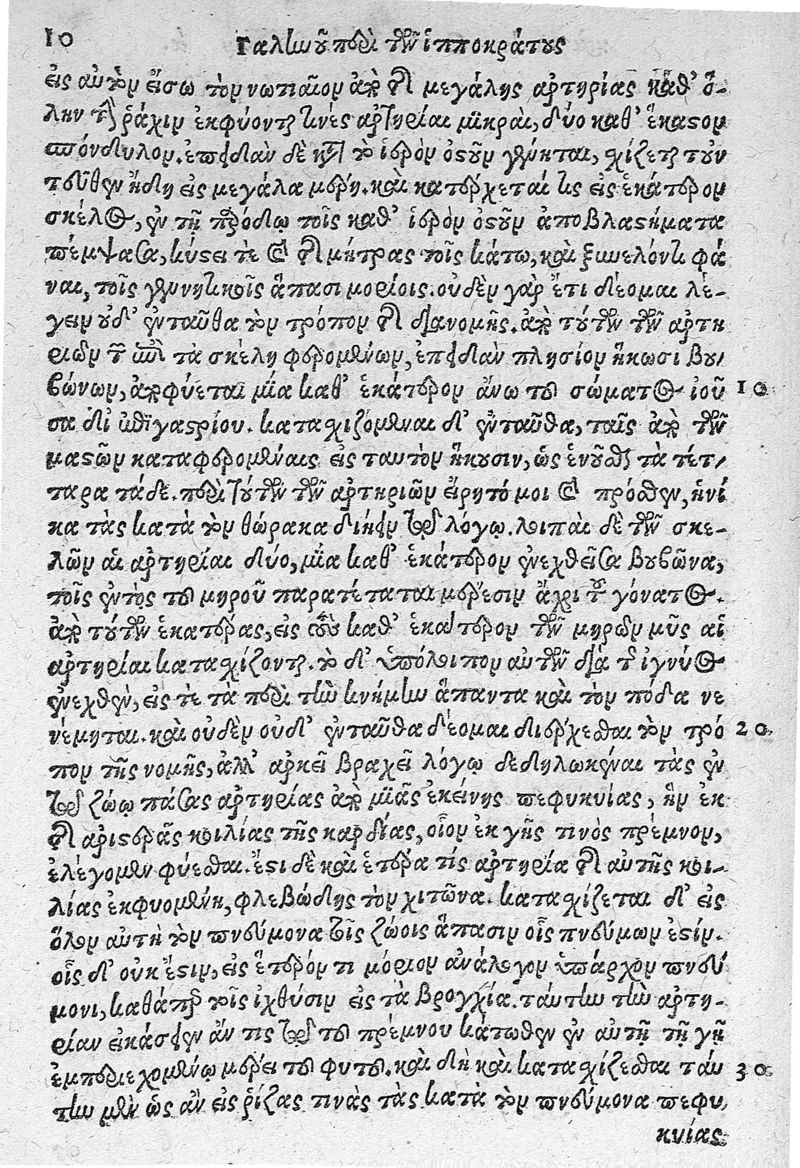 10
Γαληνοῦ περὶ τῶν ἱπποκράτους
εἰς αὐτὸν εἴσω τὸν νωτιαῖον ἀπὸ τῆς μεγάλης ἀρτηρίας καθ' ὅ-
λην τὴν ῥάχιν ἐκφύονται τινὲς ἀρτηρίαι μικραὶ, δύο καθ' ἕκαστον
σπόνδυλον. ἐπειδὰν δὲ κατὰ τὸ ἱερὸν ὀστοῦν γένηται, σχίζεται τοὐν
τεῦθεν ἤδη εἰς μεγάλα μέρη. καὶ κατέρχεταί τις εἰς ἑκάτερον
σκέλος, ἐν τῇ πρόσω τοῖς καθ' ἱερὸν ὀστοῦν ἀποβλαστήματα
πέμψασα, κύστει τε καὶ τῆς μήτρας τοῖς κάτω, καὶ ξυνελόντι φά
ναι, τοῖς γεννητικοῖς ἅπασι μορίοις. οὐδὲν γὰρ ἔτι δέομαι λέ-
γειν οὐδ' ἐνταῦθα τὸν τρόπον τῆς διανομῆς. ἀπὸ τούτων τῶν ἀρτη
ριῶν τῶν ἐπὶ τὰ σκέλη φερομένων, ἐπειδὰν πλησίον ἥκωσι βου-
βώνων, ἀποφύεται μία καθ' ἑκάτερον ἄνω τοῦ σώματος ἰοῦ
10
σα δι' ὑπογαστρίου. κατασχιζόμεναι δ' ἐνταῦθα, ταῖς ἀπὸ τῶν
μαστῶν καταφερομέναις εἰς ταυτὸν ἥκουσιν, ὡς ἑνοῦσθαι τὰ τέτ-
ταρα τάδε. περὶ τούτων τῶν ἀρτηριῶν εἴρητό μοι καὶ πρόσθεν, ἡνί
κα τὰς κατὰ τὸν θώρακα διῄειν τῷ λόγῳ. λοιπαὶ δὲ τῶν σκε-
λῶν αἱ ἀρτηρίαι δύο, μία καθ' ἑκάτερον ἐνεχθεῖσα βουβῶνα,
τοῖς ἐντὸς τοῦ μηροῦ παρατέταται μέρεσιν ἄχρι τοῦ γόνατος.
ἀπὸ τούτων ἑκατέρας, εἰς τοὺς καθ' ἑκάτερον τῶν μηρῶν μῦς αἱ
ἀρτηρίαι κατασχίζονται. τὸ δ' ὑπόλοιπον αὐτῶν διὰ τῆς ἰγνύος
ἐνεχθὲν, εἴς τε τὰ περὶ τὴν κνήμην ἅπαντα καὶ τὸν πόδα νε
νέμηται. καὶ οὐδὲν οὐδ' ἐνταῦθα δέομαι διέρχεσθαι τὸν τρό
20
πον τῆς νομῆς, ἀλλ' ἀρκεῖ βραχεῖ λόγῳ δεδηλωκέναι τὰς ἐν
τῷ ζώῳ πάσας ἀρτηρίας ἀπὸ μιᾶς ἐκείνης πεφυκυίας, ἣν ἐκ
τῆς ἀριστερᾶς κοιλίας τῆς καρδίας, οἷον ἐκ γῆς τινὸς πρέμνον,
ἐλέγομεν φύεσθαι. ἔστι δὲ καὶ ἑτέρα τίς ἀρτηρία τῆς αὐτῆς κοι-
λίας ἐκφυομένη, φλεβώδης τὸν χιτῶνα. κατασχίζεται δ' εἰς
ὅλον αὐτὴ τὸν πνεύμονα τοῖς ζώοις ἅπασιν οἷς πνεύμων ἐστίν.
οἷς δ' οὐκ ἔστιν, εἰς ἕτερόν τι μόριον ἀνάλογον ὑπάρχον πνεύ
μονι, καθάπερ τοῖς ἰχθύσιν εἰς τὰ βρογχία. ταύτην τὴν ἀρτη-
ρίαν εἰκάσειεν ἄν τις τῷ τοῦ πρέμνου κάτωθεν ἐν αὐτῇ τῇ γῇ
ἐμπεριεχομένῳ μέρει τοῦ φυτοῦ. καὶ δὴ καὶ κατασχίζεσθαι ταύ
30
την μὲν ὡς ἂν εἰς ῥίζας τινὰς τὰς κατὰ τὸν πνεύμονα πεφυ-
κυίας.